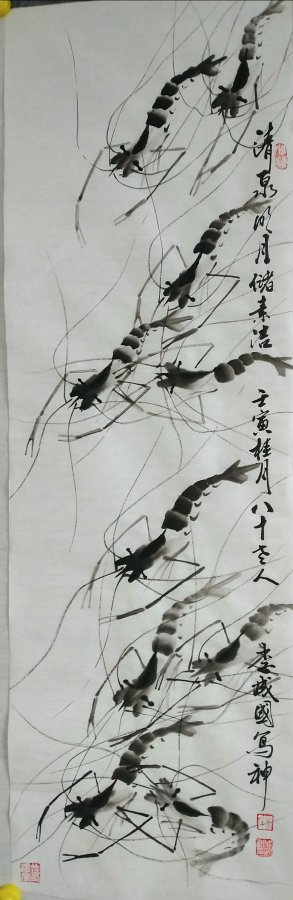 清泉明月储素洁 壬寅桂月 八十老人
娄成国写神